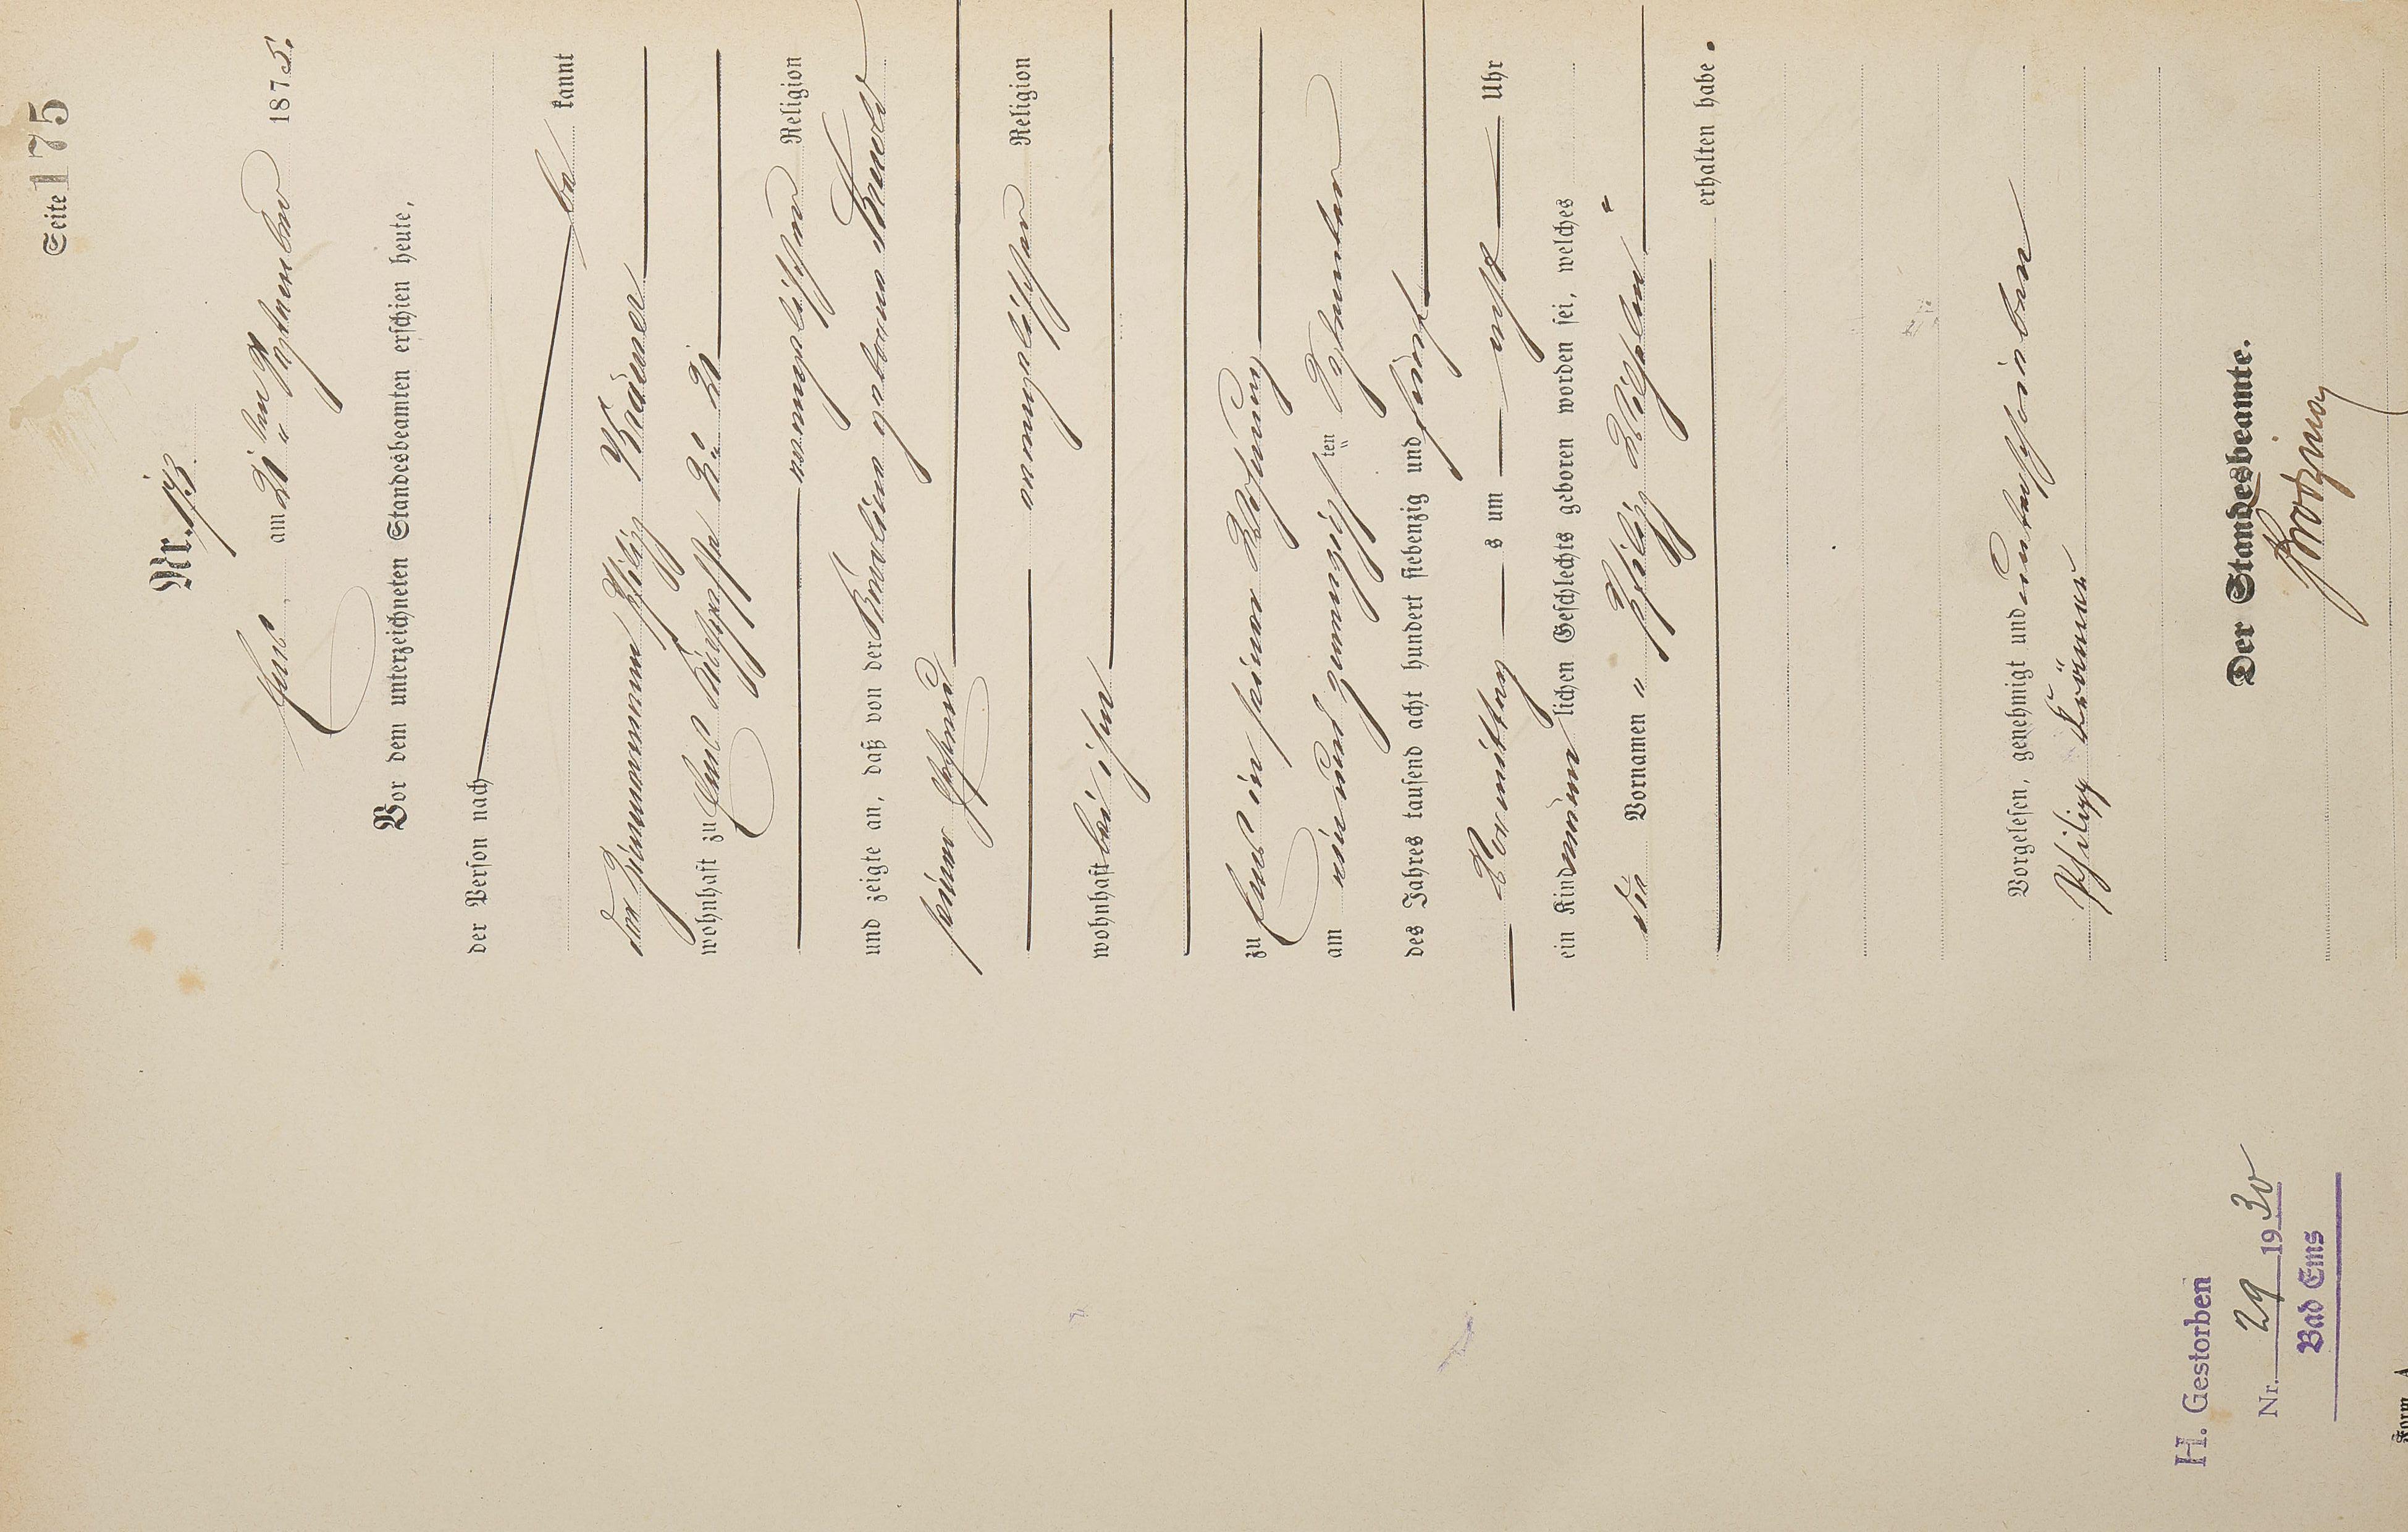 Seite 175
Nr. 173.
Ems, am 21ten September 1875.
Vor dem unterzeichneten Standesbeamten erschien heute,
der Person nach
be kannt
der Zimmermann Philipp Krämer
wohnhaft zu Ems
evangelischer Religion
und zeigte an, daß von der Karoline geborene
seiner Ehefrau
evangelischer Religion
wohnhaft bei ihm
zu Ems in seiner Wohnung
am ein und zwanzigsten September
des Jahres tausend acht hundert siebenzig und fünf
Vormittag s um Uhr
ein Kind männ lichen Geschlechts geboren worden sei, welches
die Vornamen „Philipp Wilhelm"
erhalten habe.
Vorgelesen, genehmigt und unterschrieben
Philipp Krämer
Der Standesbeamte.
H. Gestorben
Nr. 29 1930
Bad Ems
Form. A